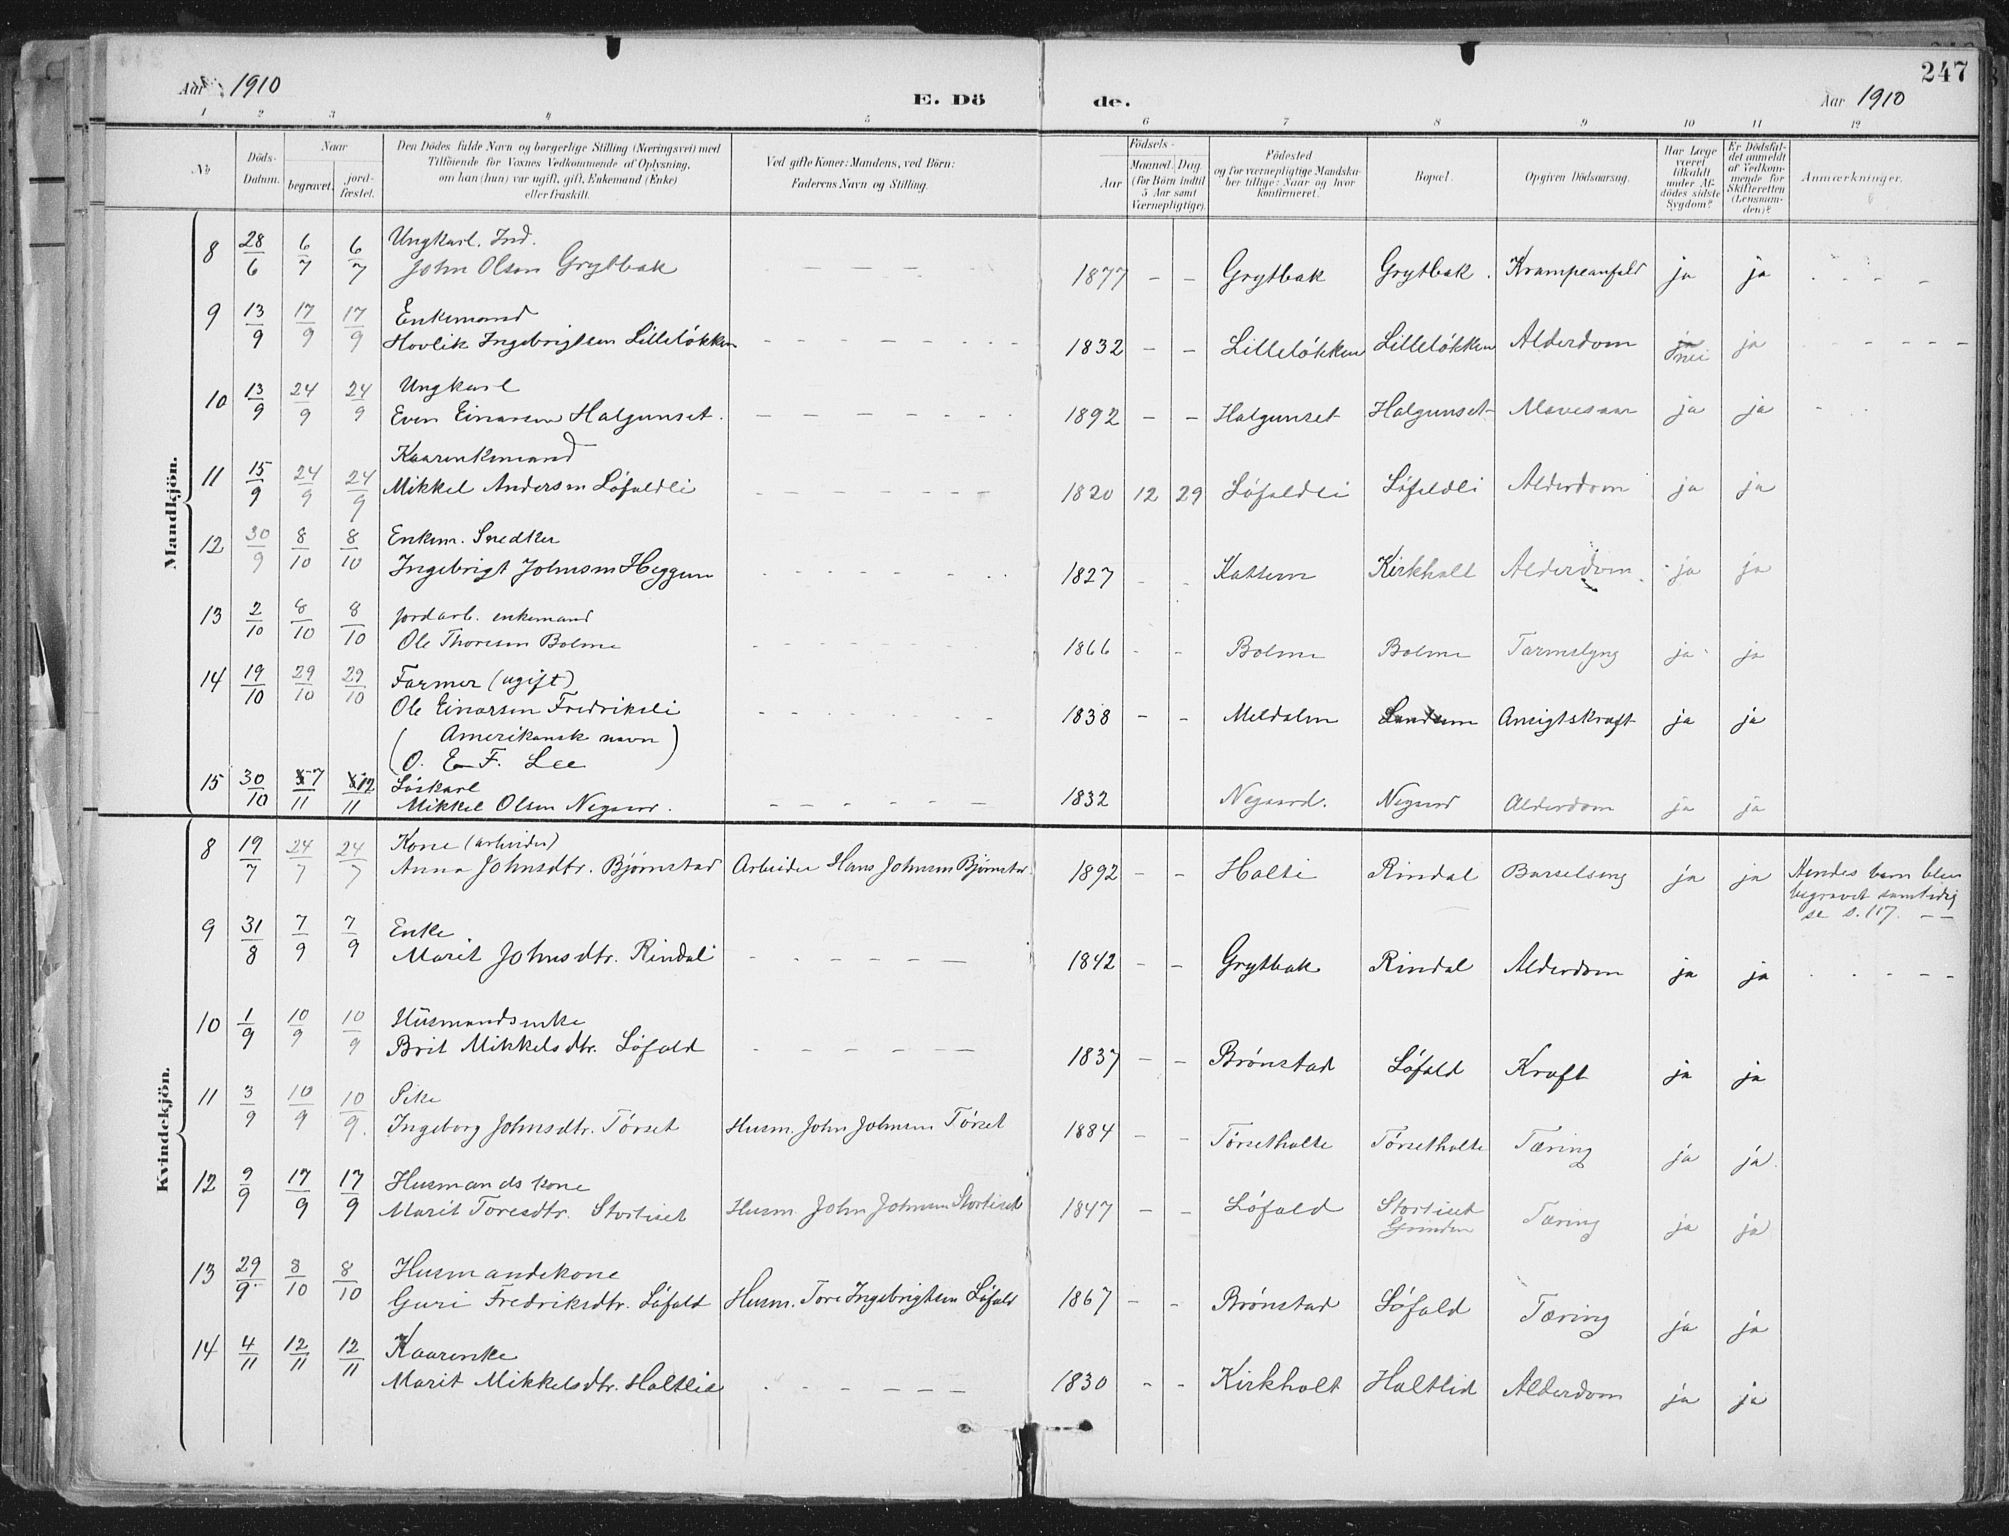 247
Aar 1910
E. Dö
de.
Aar 1910
1 2 3 4 5 6 7 8 9 10 11 12
No
Döds-Datum.
Naar
begravet.
jord-fæstet.
Den Dödes fulde Navn og borgerlige Stilling (Næringsvei) med
Tilföiende for Voxnes Vedkommende af Oplysning,
om han (hun) var ugift, gift, Enkemand (Enke)
eller fraskilt.
Ved gifte Koner: Mandens, ved Börn:
Faderens Navn og Stilling.
Födsels-
Aar
Maaned. Dag.
(for Börn indtil
5 Aar samt
Værnepligtige).
Födested
og for værnepligtige Mandska-
ber tillige: Naar og hvor
konfirmeret.
Bopæl.
Opgiven Dödsaarsag.
Har Læge
været
tilkaldt
under Af-
dödes sidste
Sygdom?
Er Dödsfal-
det anmeldt
af Vedkom-
mende for
Skifteretten
(Lensman-
den)?
Anmærkninger.
Mandkjön.
8 28/6 6/7 6/7 Ungkarl. Ind.
John Olsen Grytbak - - - - 1877 - - Grytbak Grytbak. Krampeanfald ja ja - - - -
9 13/9 17/9 17/9 Enkemand
Hovlik Ingebrigtsen Lilleløkken - - - - 1832 - - Lilleløkken Lilleløkken Alderdom ja nei ja - - - -
10 13/9 24/9 24/9 Ungkarl
Even Einarsen Halgunset. - - - - 1892 - - Halgunset Halgunset Mavesaar ja ja - -
11 15/9 24/9 24/9 Kaarenkemand
Mikkel Andersen Løfaldli - - - - 1820 12 29 Løfaldli Løfaldli Alderdom ja ja
12 30/9 8/10 8/10 Enkem. Snedker
Ingebrigt Johnsen Heggem - - - - 1827 - - Kattem Kirkholt Alderdom. ja ja
13 2/10 8/10 8/10 Jordarb. enkemand
Ole Thoresen Bolme - - - - 1866 - - Bolme Bolme Tarmslyng ja ja
14 19/10 29/10 29/10 Farmer (ugift)
Ole Einarsen Fredriksli - - - - 1838 - - Meldalen Landsem Ansigtskræft ja ja
( Amerikansk navn )
O. E. F. Lee
15 30/10 7/11 12/11 Løskarl
Mikkel Olsen Negaard. - - - - 1832 Negaard. Negard Alderdom ja ja
Kvindekjön.
8 19/7 24/7 24/7 Kone (arbeider)
Anna Johnsdtr. Bjørnstad Arbeider Hans Johnsen Bjørnstad 1892 - - Holte Rindal Barselseng ja ja Hendes barn blev
begravet samtidig
se s. 117. - -
9 31/8 7/9 7/9 Enke
Marit Johnsdtr. Rindal - - - - 1842 - - Grytbak Rindal Alderdom ja ja - - - -
10 1/9 10/9 10/9 Husmandsenke
Brit Mikkelsdtr. Løfald - - - - 1837 - - Brønstad Løfald Kræft ja ja
11 3/9 10/9 10/9 Pike
Ingeborg Johnsdtr. Tørset Husm. John Johnsen Tørset 1884 - - Tørsetholte Tørsetholte Tæring ja ja
12 9/9 17/9 17/9 Husmandskone
Marit Toresdtr. Stortiset Husm. John Johnsen Stortiset 1847 - - Løfald Stortiset
Grinden Tæring ja ja
13 29/9 8/10 8/10 Husmandskone
Guri Fredriksdtr. Løfald Husm. Tore Ingebrigtsen Løfald 1867 - - Brønstad Løfald Tæring ja ja
14 4/11 12/11 12/11 Kaarenke
Marit Mikkelsdtr. Holtlid - - - - 1830 - - Kirkholt Holtlid Alderdom ja ja